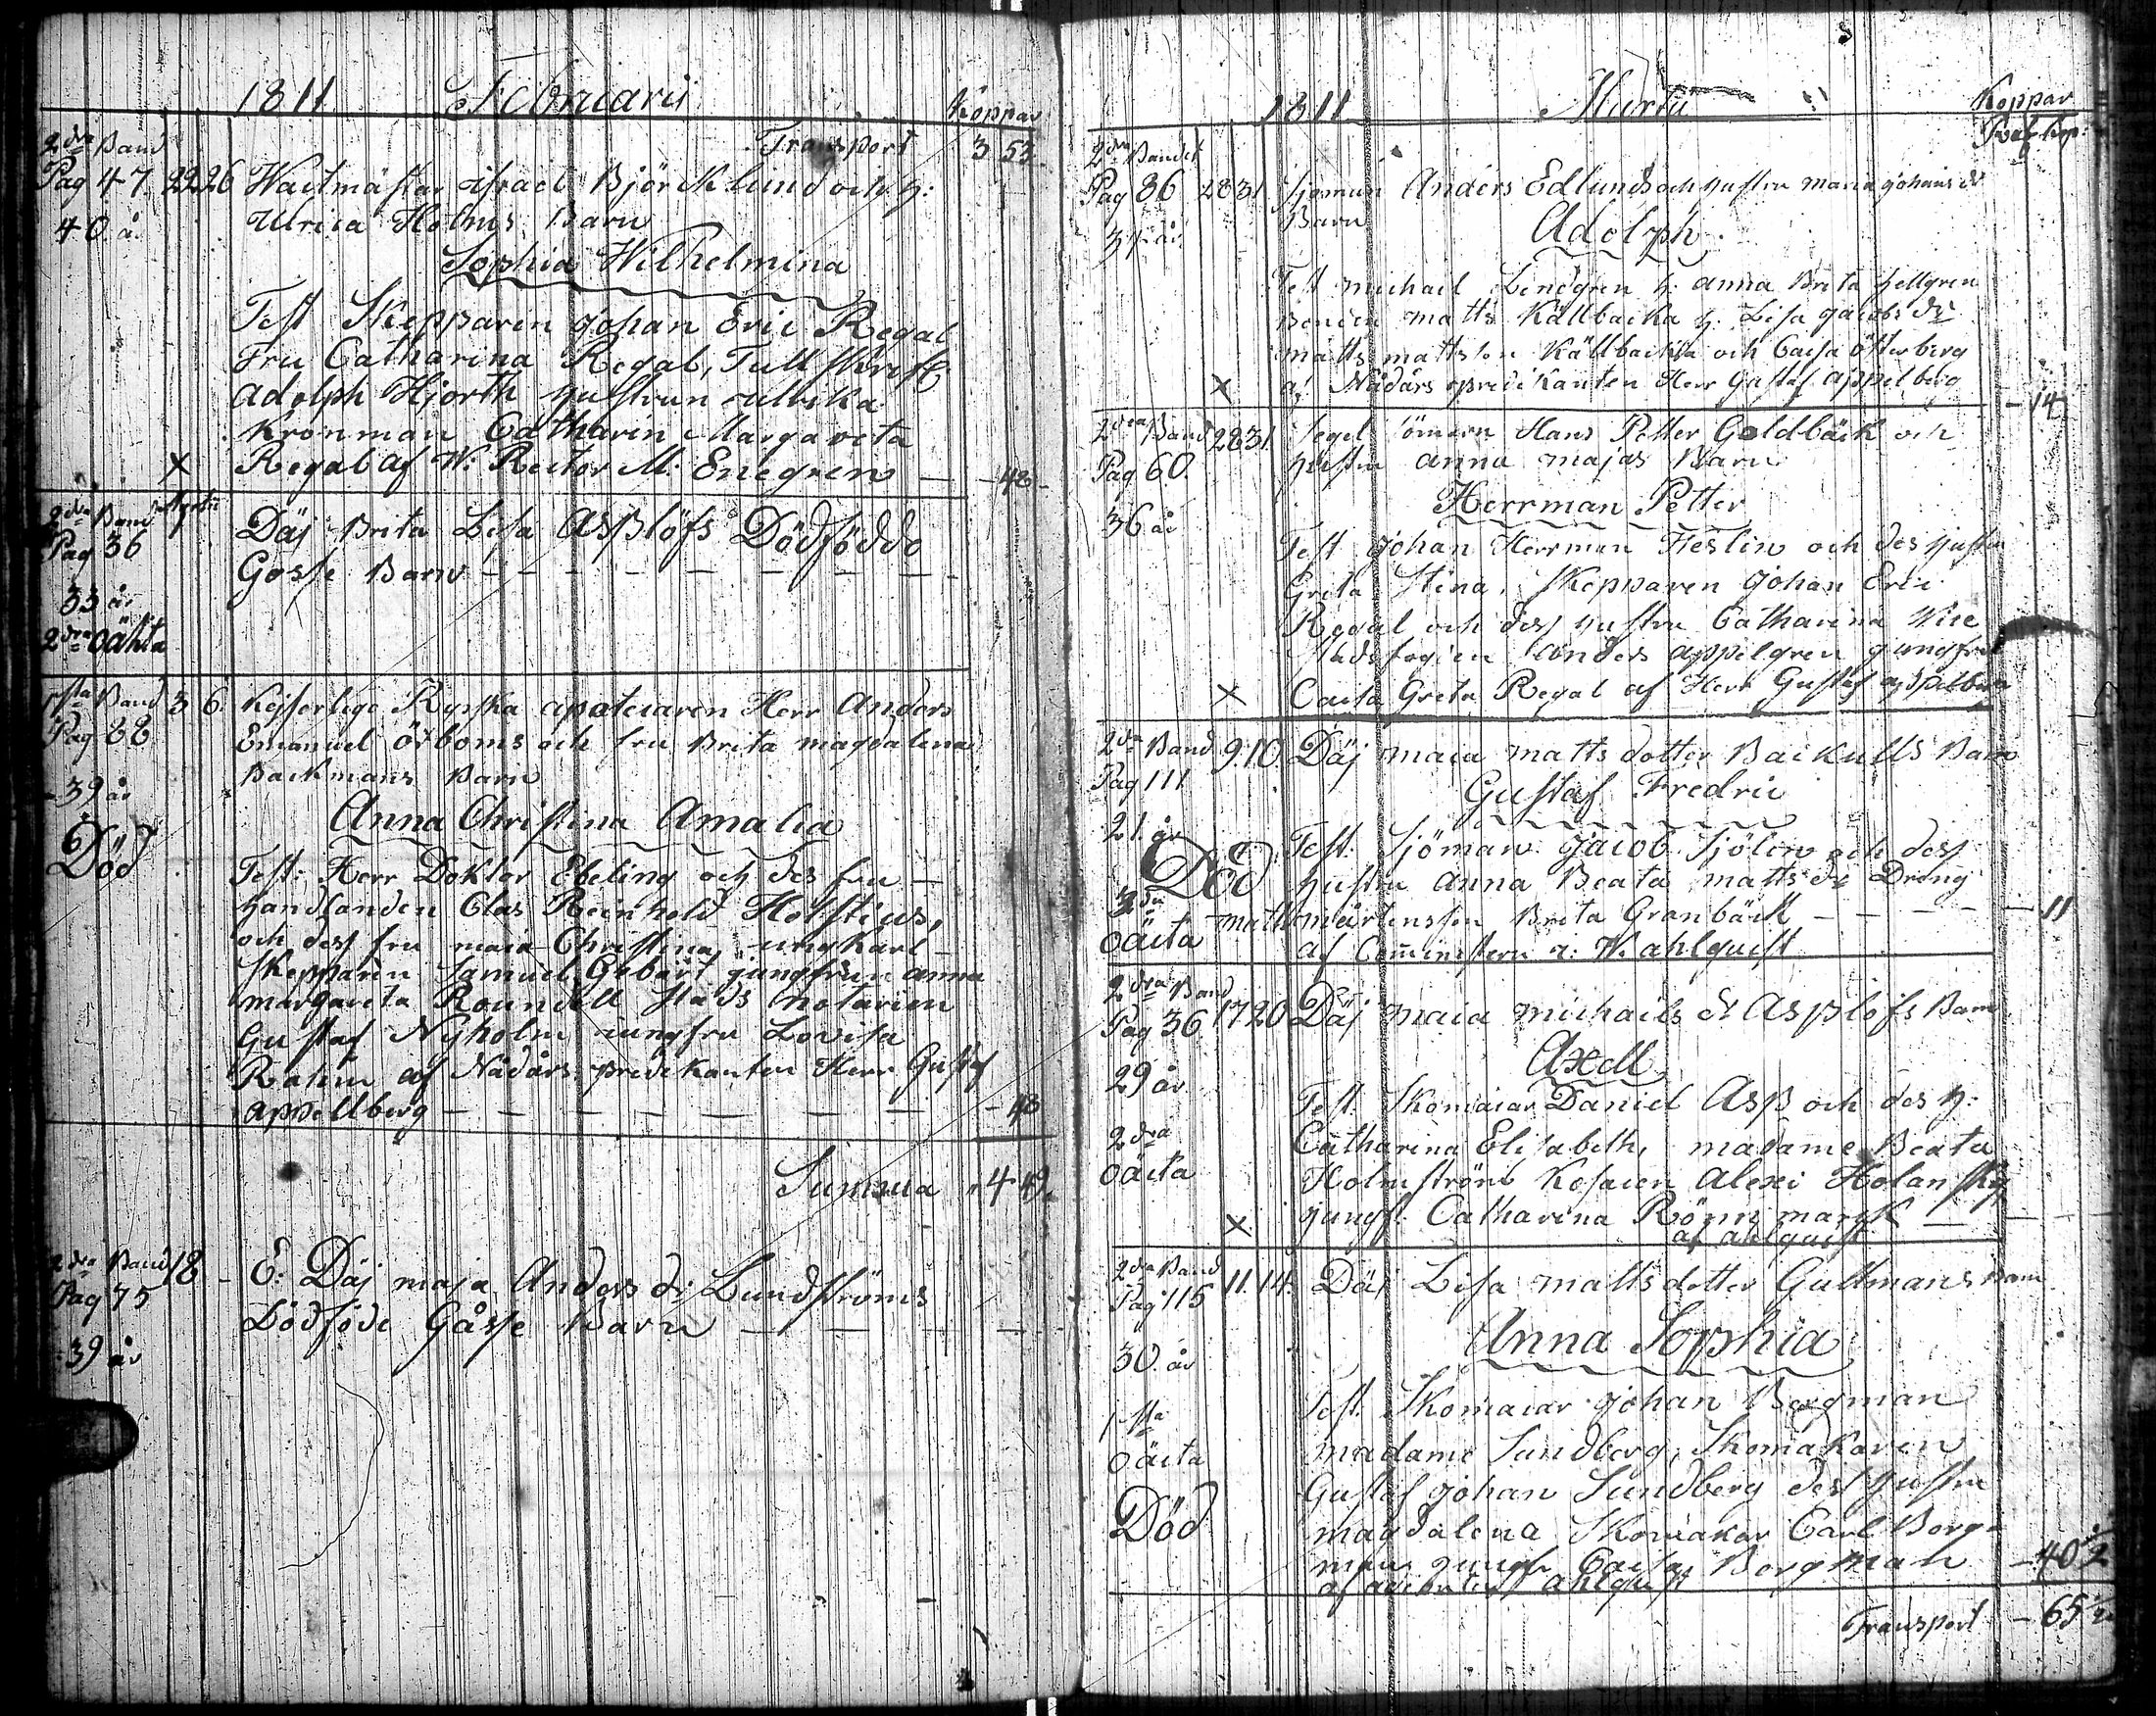 1811 Februarii
Koppar
Transport 3 53
2dra Band
Pag 47. 22 26 Wactmästar Israel Björcklund och H:
40 år Ulrica Holms Barn
Sophia Wilhelmina
Test Skepparen Johan Eric Regal
Fru Catharina Regal, Tull
Adolph Hjorth hustrun Ulrika
Kronman Catharin Margareta
× Regal af W: Rector M: Enegren — 48
2dra Band Martii Däj Brita Lisa Asplöfs Dödföddo
Pag 36 Gosse Barn
33 år
2dra oähta
1sta Band 3 6 Kejserlige Ryska apatecaren Herr Anders
Pag 88 Emanuel örboms och fru Brita magdalena
Backmans Barn
39 år
Anna Christina Amalia
Död
Test: Herr Doktor Ebeling och des fru
handlanden Clas Reinhold Holstius,
och dess fru maia Christina, ungkarl
Skepparen Samuel Gebart jungfrun anna
margareta Roundell stads notarien
Gustaf Nyholm jungfru Lovisa
Rahm af Nådårs predikanten Herr Gustaf
appellberg — 48
Summa 4 49
2dra Band 18 E: Däj maja Anders dr Lundströms
Pag 75 Dödföde Gåsse Barn
39 år
1811 Martii
Koppar
2dra Bandet
Pag 86 28 31 Sjöman Anders Edlunds och hustru maria johans dr
Barn
Adolph
Test michael Lindgren h: anna Brita hellgren
Bonden matts Källbacka h: Lisa jacobs dr
matts mattsson Källbacka och Caisa österberg
× af Nådårs predikanten Herr Gustaf appelberg — 14
2dra Band 28 31 Segel sömarn Hans Petter Goldbäck och
Pag 60. hustru anna majas Barn
Herrman Petter
36 år
Test Johan Herrman Feslin och des hustru
Greta Stina, Skepparen Johan Eric
Regal och dess hustru Catharina Wice
stadsfogden anders appelgren jungfru
× Caisa Greta Regal af Herr Gustaf appelberg
2dra Band 9. 10. Däj maia matts dotter Backulls Barn
Pag 111
Gustaf Fredric
21 år
Död
Test: Sjöman Jacob Sjölin och dess
hustru anna Beata matts dr Dräng
3dra
oäcta math mårtensson Brita Granbäck — 11
af Comministern a: W. ahlquist
2dra Band
Pag 36. 17 20 Däj maia michaels dr Asplöfs Barn
Axell
29 år
Test Skomacar Daniel Asp och des h:
2dra Catharina Elisabeth, madame Beata
oäcta Holmström Kosacen Alexei Holanskij
× jungf: Catharina Rönnmark
af ahlquist
2dra Band 11. 14. Däj Lisa matts dotter Gullmans Barn
Pag 115
Anna Sophia
30 år
Test Skomacar johan Bergman
1sta
oäcta madame Sundberg, Skomakaren
Gustaf johan Sundberg des hustru
Död magdalena Skomakar Carl Berg
man jungfr Caisa Bergman — 40 1/2
ahlquist
Transport — 65 1/2